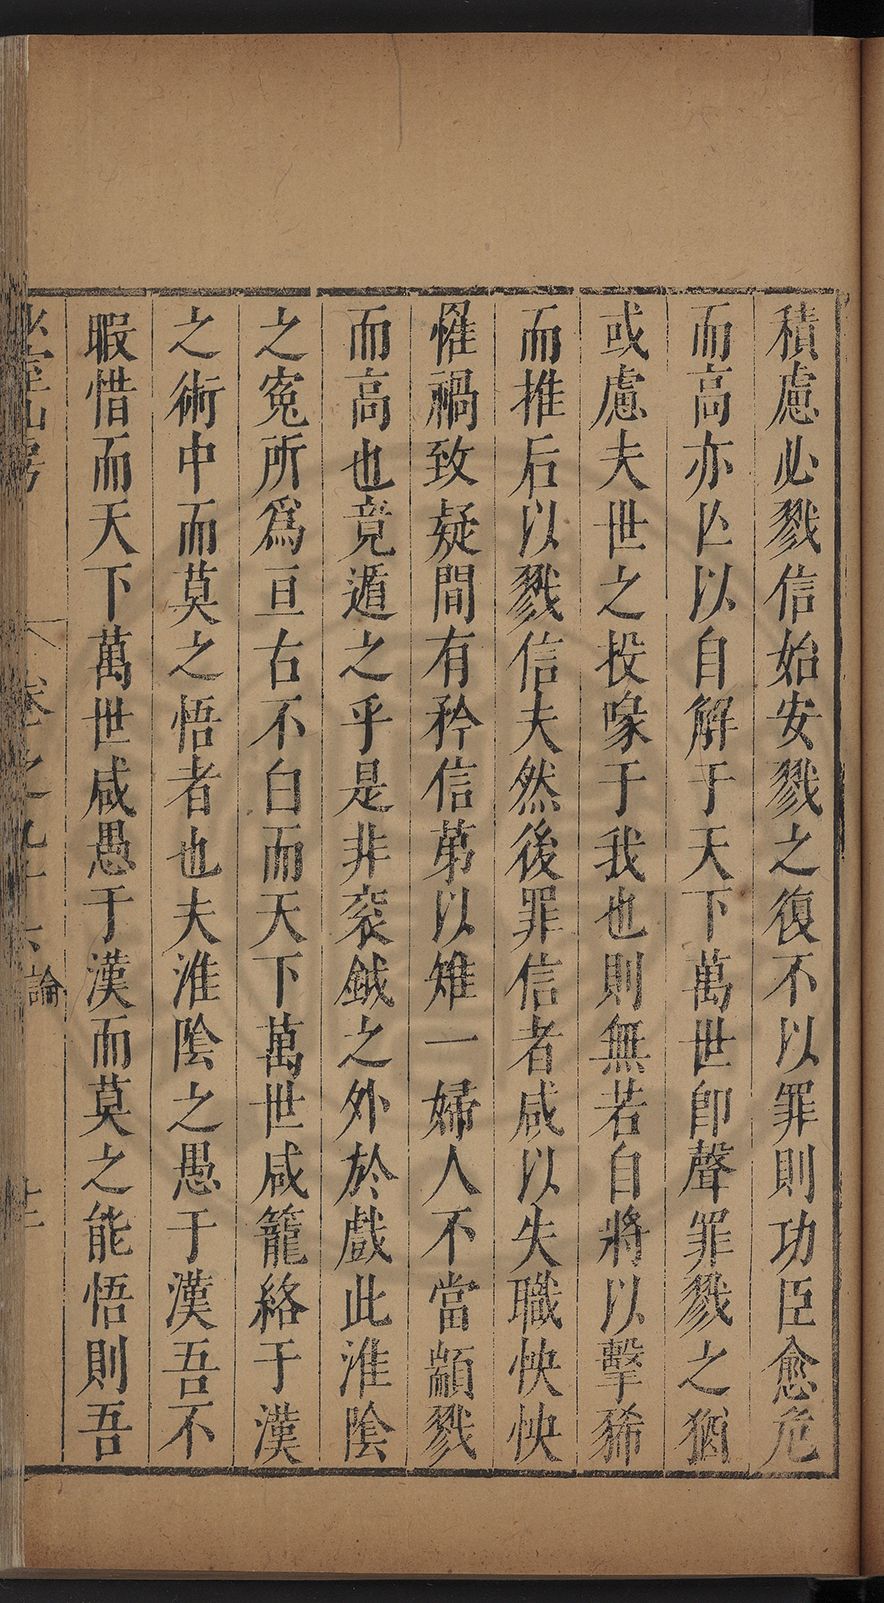 積慮必戮信始安戮之復不以罪則功臣愈危
而高亦亡以自解于天下萬世卽聲罪戮之猶
或慮夫世之投喙于我也則無若自將以擊豨
而推后以戮信夫然後罪信者咸以失職怏怏
惟禍致疑間有矜信苐以雉一婦人不當顓戮
而高也竟遁之乎是非衮鉞之外於戲此淮陰
之寃所爲亘古不白而天下萬世咸籠絡于漢
之術中而莫之悟者也夫淮陰之愚于漢吾不
暇惜而天下萬世咸愚于漢而莫之能悟則吾
山房
卷之九十六
論